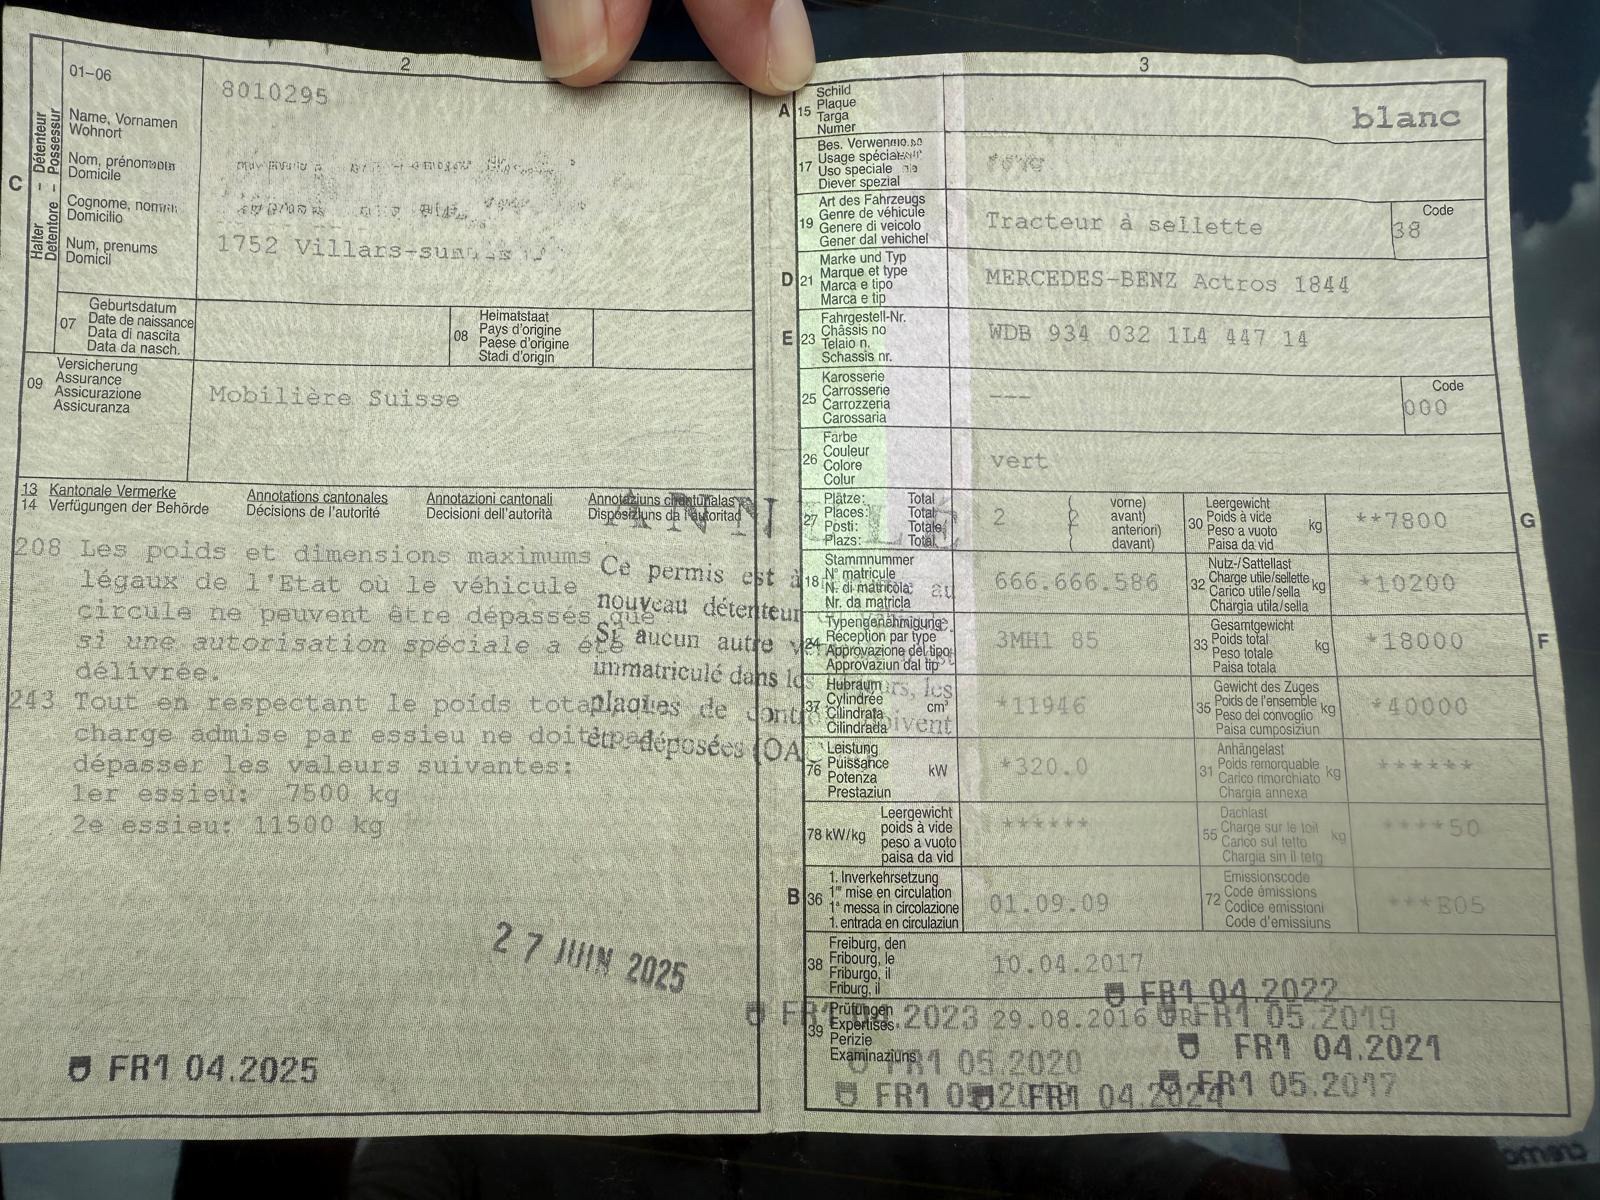 2
01-06
8010295
C
Halter - Détenteur
Detentore - Possessur
Name, Vornamen
Wohnort
Nom, prénom
Domicile
Cognome, nom
Domicilio
Num, prenums
Domicil
1752 Villars-su
07
Geburtsdatum
Date de naissance
Data di nascita
Data da nasch.
08
Heimatstaat
Pays d'origine
Paese d'origine
Stadi d'origin
09
Versicherung
Assurance
Assicurazione
Assicuranza
Mobilière Suisse
13 Kantonale Vermerke Annotations cantonales Annotazioni cantonali Annotaziuns chantunalas
14 Verfügungen der Behörde Décisions de l'autorité Decisioni dell'autorità Disposiziuns da l'autoritad
208 Les poids et dimensions maximums
légaux de l'Etat où le véhicule
circule ne peuvent être dépassés que
si une autorisation spéciale a été
délivrée.
243 Tout en respectant le poids total
charge admise par essieu ne doit pas
dépasser les valeurs suivantes:
1er essieu: 7500 kg
2e essieu: 11500 kg
Ce permis est à
nouveau détenteur
Si aucun autre
immatriculé dans les
plaques de
être déposées (OA
27 JUIN 2025
FR1 04.2025
3
A
15
Schild
Plaque
Targa
Numer
blanc
17
Bes.
Usage
Uso speciale
Diever spezial
19
Art des Fahrzeugs
Genre de véhicule
Genere di veicolo
Gener dal vehichel
Tracteur à sellette
Code
38
D
21
Marke und Typ
Marque et type
Marca e tipo
Marca e tip
MERCEDES-BENZ Actros 1844
E
23
Fahrgestell-Nr.
Châssis no
Telaio n.
Schassis nr.
WDB 934 032 1L4 447 14
25
Karosserie
Carrosserie
Carrozzeria
Carossaria
---
Code
000
26
Farbe
Couleur
Colore
Colur
vert
27
Plätze: Total
Places: Total
Posti: Totale
Plazs: Total
2
vorne)
avant)
anteriori)
davant)
30
Leergewicht
Poids à vide
Peso a vuoto
Paisa da vid
kg
**7800
G
18
Stammnummer
N° matricule
N. di matricola
Nr. da matricla
666.666.586
32
Nutz-/Sattellast
Charge utile/sellette
Carico utile/sella
Chargia utila/sella
kg
*10200
24
Typengenehmigung
Réception par type
Approvazione del tipo
Approvaziun dal tip
3MH1 85
33
Gesamtgewicht
Poids total
Peso totale
Paisa totala
kg
*18000
F
37
Hubraum
Cylindrée
Cilindrata
Cilindrada
cm³
*11946
35
Gewicht des Zuges
Poids de l'ensemble
Peso del convoglio
Paisa cumposiziun
kg
*40000
76
Leistung
Puissance
Potenza
Prestaziun
kW
*320.0
31
Anhängelast
Poids remorquable
Carico rimorchiato
Chargia annexa
kg
******
78 kW/kg
Leergewicht
poids à vide
peso a vuoto
paisa da vid
******
55
Dachlast
Charge sur le toit
Carico sul tetto
Chargia sin il tetg
kg
****50
B
36
1. Inverkehrsetzung
1re mise en circulation
1a messa in circolazione
1. entrada en circulaziun
01.09.09
72
Emissionscode
Code émissions
Codice emissioni
Code d'emissiuns
***E05
38
Freiburg, den
Fribourg, le
Friburgo, il
Friburg, il
10.04.2017
FR1 04.2022
39
Prüfungen
Expertises
Perizie
Examinaziuns
FR1 04.2023
29.08.2016
FR1 05.2019
FR1 04.2021
FR1 05.2020
FR1 05.2017
FR1 04.2024